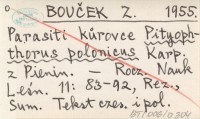 BOUČEK Z. 1955.
Parasiti kůrovce Pityoph-
thorus polonicus Karp.
z Pienin. — Rocz. Nauk
Leśn. 11: 83-92, Rez.,
Sum. Tekst czes. i pol.